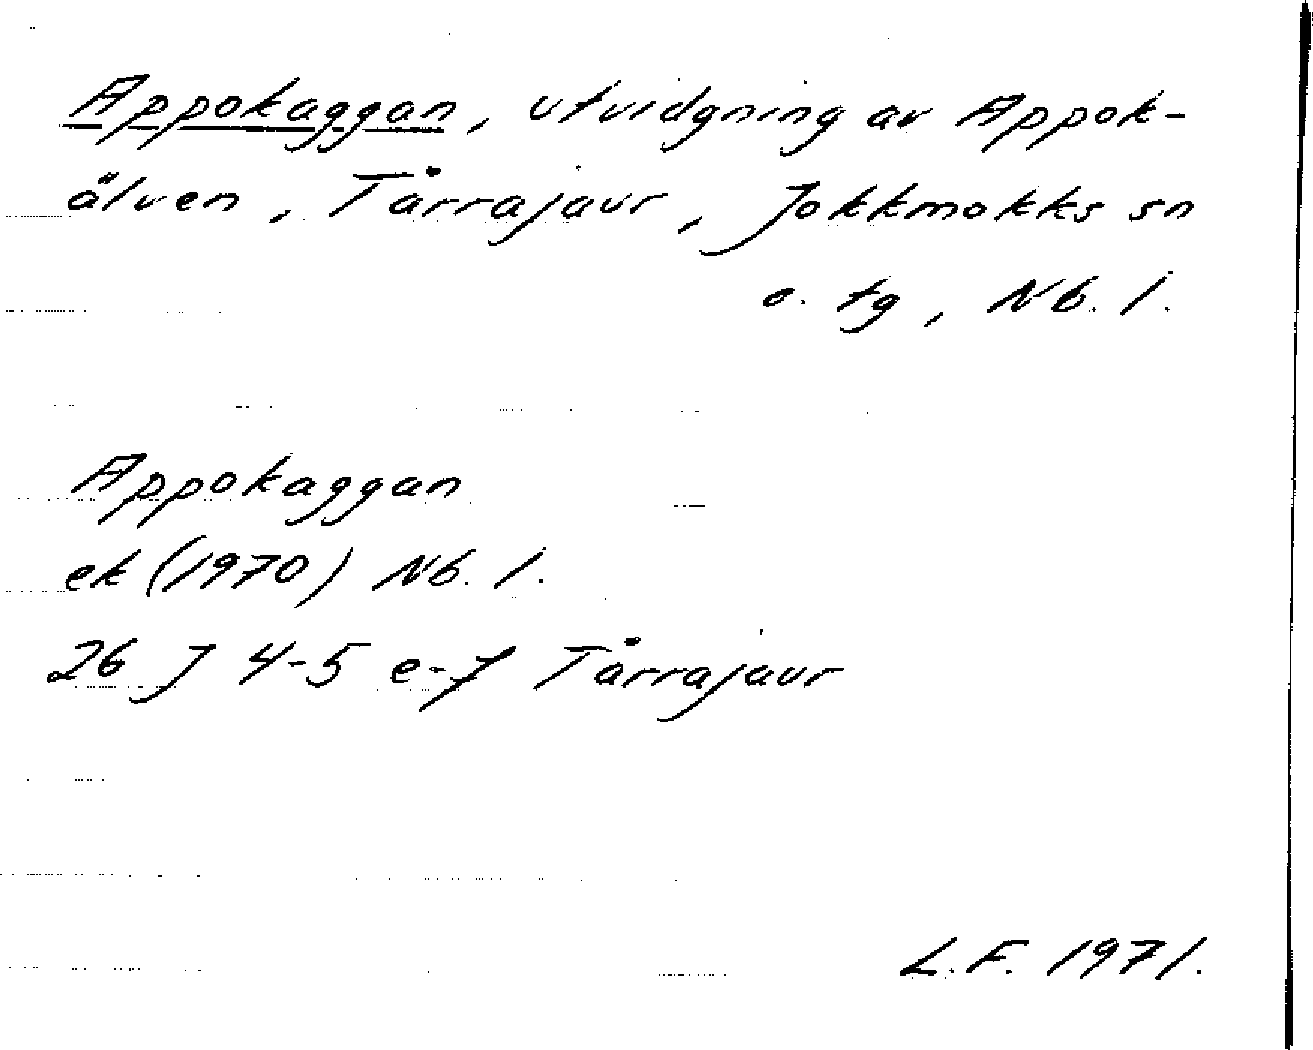 Appokaggan, utvidgning av Appok-
älven, Tårrajaur, Jokkmokks sn
o. tg, Nb. l.
Appokaggan
ek (1970) Nb. l.
26 J 4-5 e-f Tårrajaur
L.F. 1971.